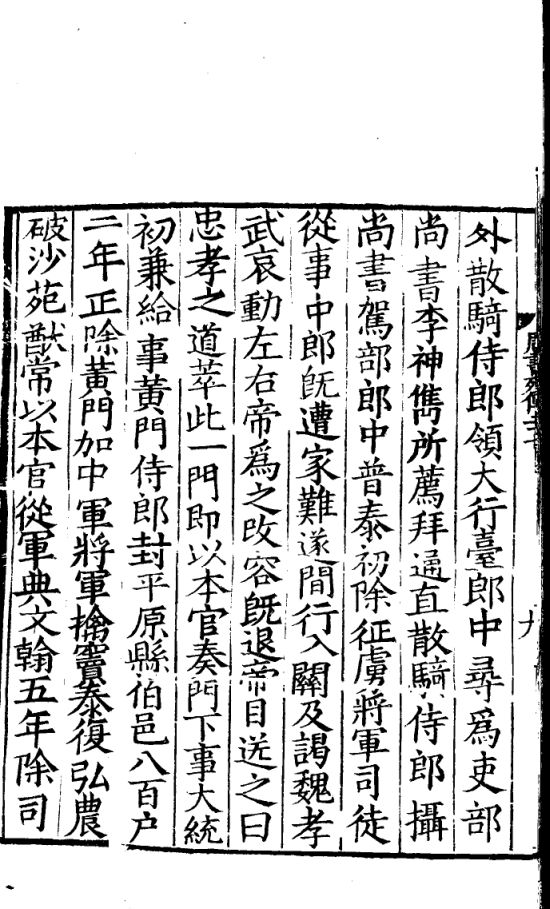 外散騎侍郎領大行臺郎中尋爲吏部
尚書李神儁所薦拜通直散騎侍郎攝
尚書駕部郎中普泰初除征虜將軍司徒
從事中郎旣遭家難遂間行入關及謁魏孝
武哀動左右帝爲之改容旣退帝目送之曰
忠孝之道萃此一門即以本官奏門下事大統
初兼給事黃門侍郎封平原縣伯邑八百户
二年正除黃門加中軍將軍擒竇泰復弘農
破沙苑猷常以本官從軍典文翰五年除司
九